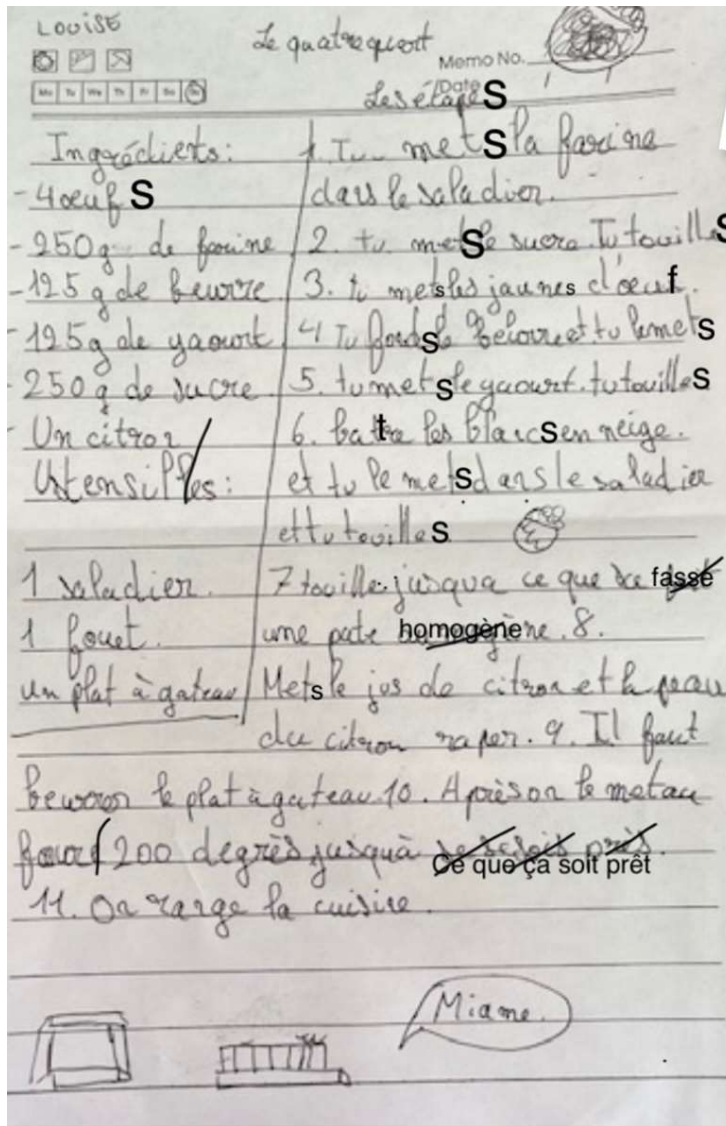 LOUISE
Le quatrequart
Memo No.
Mo Tu We Th Fr Sa Su
Date
Les étapes
Ingrédients:
- 4 oeufs
- 250g de farine
- 125 g de beurre
- 125g de yaourt
- 250g de sucre
- Un citron
Ustensilles:
1 saladier.
1 fouet.
un plat à gateau
1. Tu mets la farine
dans le saladier.
2. tu mets le sucre. Tu touilles
3. tu mets les jaunes d'oeuf.
4 Tu fonds le beurre et tu le mets
5. tu mets le yaourt. tu touilles
6. battre les blancs en neige.
et tu le mets dans le saladier
et tu touilles
7 touille jusqua ce que sa fasse
une pate homogène. 8.
Mets le jus de citron et la peau
du citron raper. 9. Il faut
beurrer le plat à gateau. 10. Après on le met au
four 200 degrès jusquà
Ce que ça soit prêt
11. On range la cuisine.
Miame.